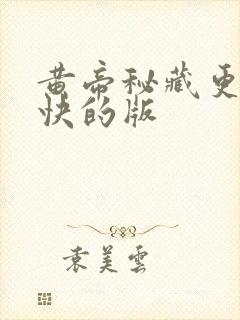 黄帝秘藏更
快的版
袁美雲